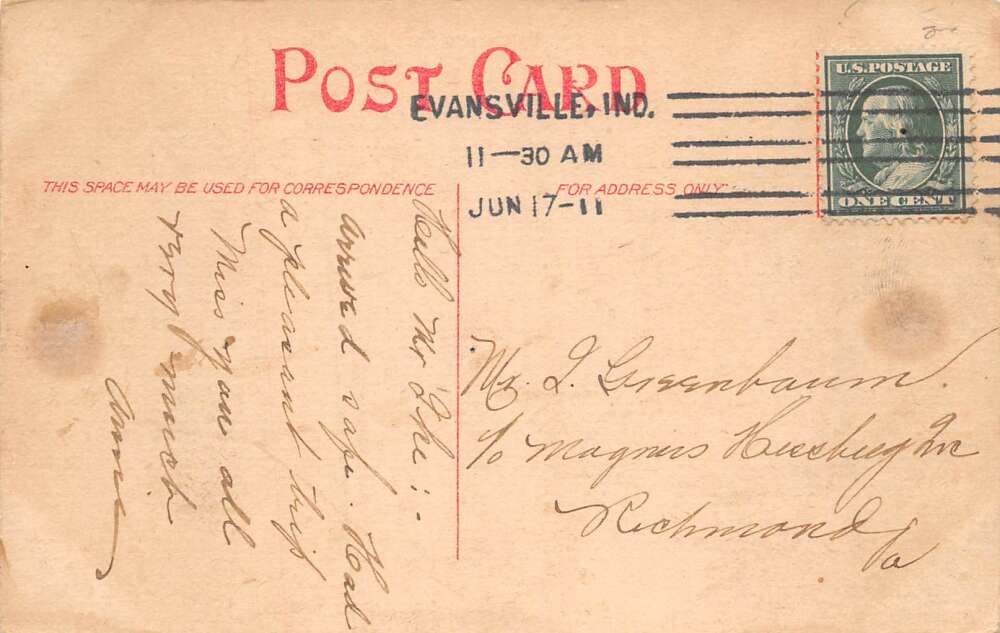 POST CARD
EVANSVILLE, IND.
11-30 AM
JUN 17-11
U.S. POSTAGE
ONE CENT
THIS SPACE MAY BE USED FOR CORRESPONDENCE
FOR ADDRESS ONLY
Hello Mr Ike :-
Arrived safe. Had
a pleasant trip
Miss you all
very much
Annie
Mr. I. Greenbaum.
c/o Magnus
Richmond
Va